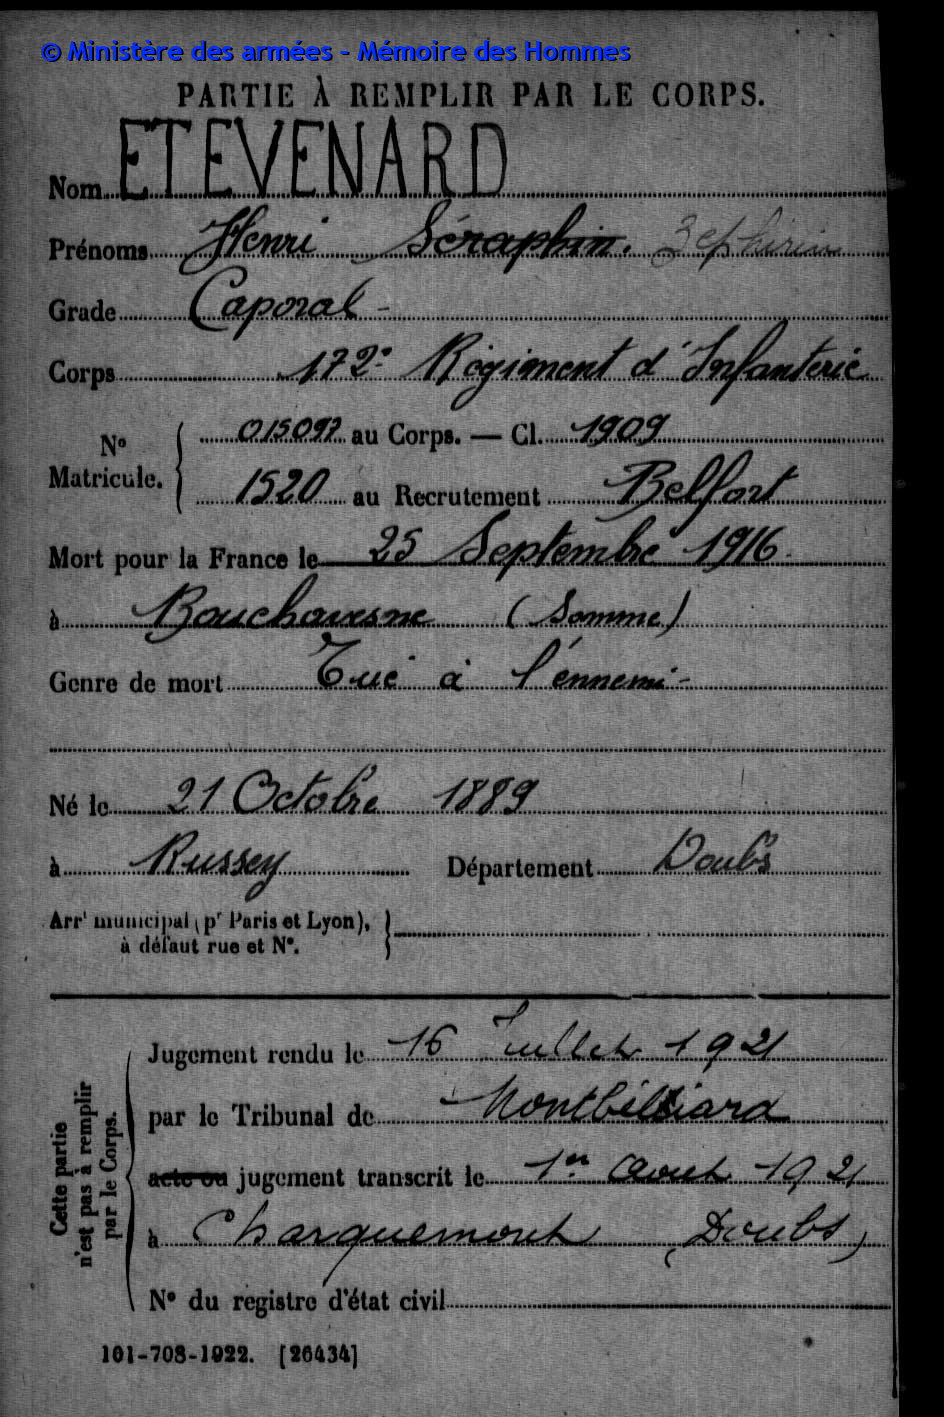 © Ministère des armées - Mémoire des Hommes
PARTIE À REMPLIR PAR LE CORPS.
Nom ETEVENARD
Prénoms Henri Séraphin. Zephirin
Grade Caporal -
Corps 172e Régiment d'Infanterie
N° Matricule. 015097 au Corps. — Cl. 1909
1520 au Recrutement Belfort
Mort pour la France le 25 Septembre 1916
à Bouchavesne (Somme)
Genre de mort Tué à l'énnemi -
Né le 21 Octobre 1889
à Russey Département Doubs
Arrt municipal (pr Paris et Lyon),
à défaut rue et N°.
Cette partie
n'est pas à remplir
par le Corps.
Jugement rendu le 16 Juillet 1921
par le Tribunal de Montbéliard
acte ou jugement transcrit le 1er Aout 1921
à Charquemont (Doubs)
N° du registre d'état civil
101-708-1922. [26434]